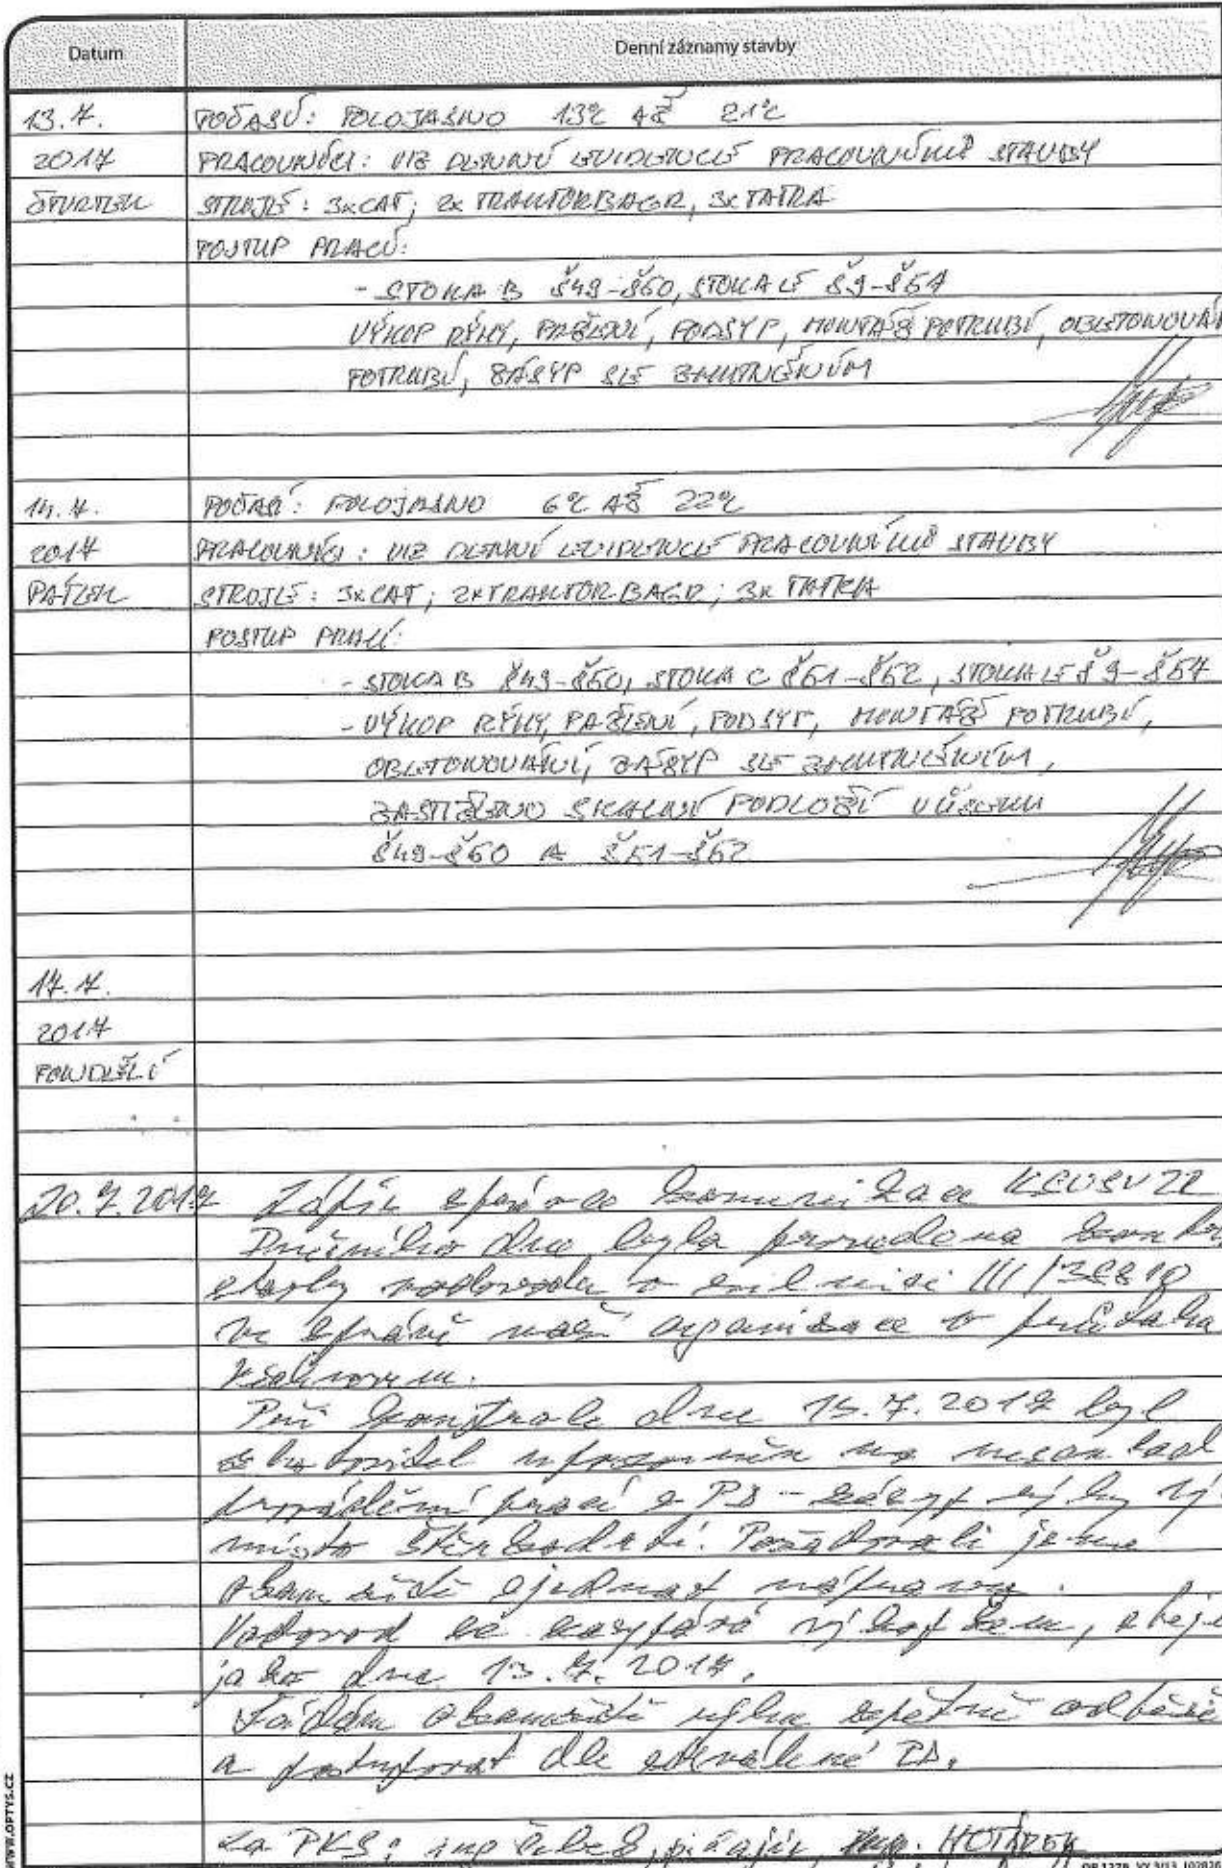 Datum
Denní záznamy stavby
13.7. POČASÍ: POLOJASNO 13°C AŽ 21°C
2017 PRACOVNÍCI: VIZ DENNÍ EVIDENCE PRACOVNÍKŮ STAVBY
ČTVRTEK STROJE: 3xCAT; 2x TRAKTORBAGR, 3x TATRA
POSTUP PRACÍ:
- STOKA B Š49-Š60, STOKA E Š9-Š64
VÝKOP RÝHY, PAŽENÍ, PODSYP, MONTÁŽ POTRUBÍ, OBETONOVÁN
POTRUBÍ, ZÁSYP SE ZHUTNĚNÍM
14.7. POČASÍ: POLOJASNO 6°C AŽ 22°C
2017 PRACOVNÍCI: VIZ DENNÍ EVIDENCE PRACOVNÍKŮ STAVBY
PÁTEK STROJE: 3xCAT; 2xTRAKTOR-BAGR; 3x TATRA
POSTUP PRACÍ:
- STOKA B Š49-Š60, STOKA C Š61-Š62, STOKA E Š9-Š64
- VÝKOP RÝHY, PAŽENÍ, PODSYP, MONTÁŽ POTRUBÍ,
OBETONOVÁNÍ, ZÁSYP SE ZHUTNĚNÍM,
ZASTIŽENO SKALNÍ PODLOŽÍ V ÚSEKU
Š49-Š60 A Š61-Š62
17.7.
2017
PONDĚLÍ
20.7.2017 Zápis správce komunikace KSÚSVZZ
Dnešního dne byla provedena kontr
stavby vodovodu v silnici III/38810
ve správě naší organizace v
Při kontrole dne 13.7.2017 byl
zhotovitel upozorněn na nesoulad
provádění prací s PD - zásyp rýhy vý
místo štěrkodrti. Požadovali jsme
okamžitě sjednat nápravu.
Vodovod se zasypává výkopkem, stej
jako dne 13.7.2017.
Žádám okamžitě rýhu zpětně odtěži
a postupovat dle schválené PD.
Za PKS: ing. HOTÁREK
WWW.OPTYS.CZ